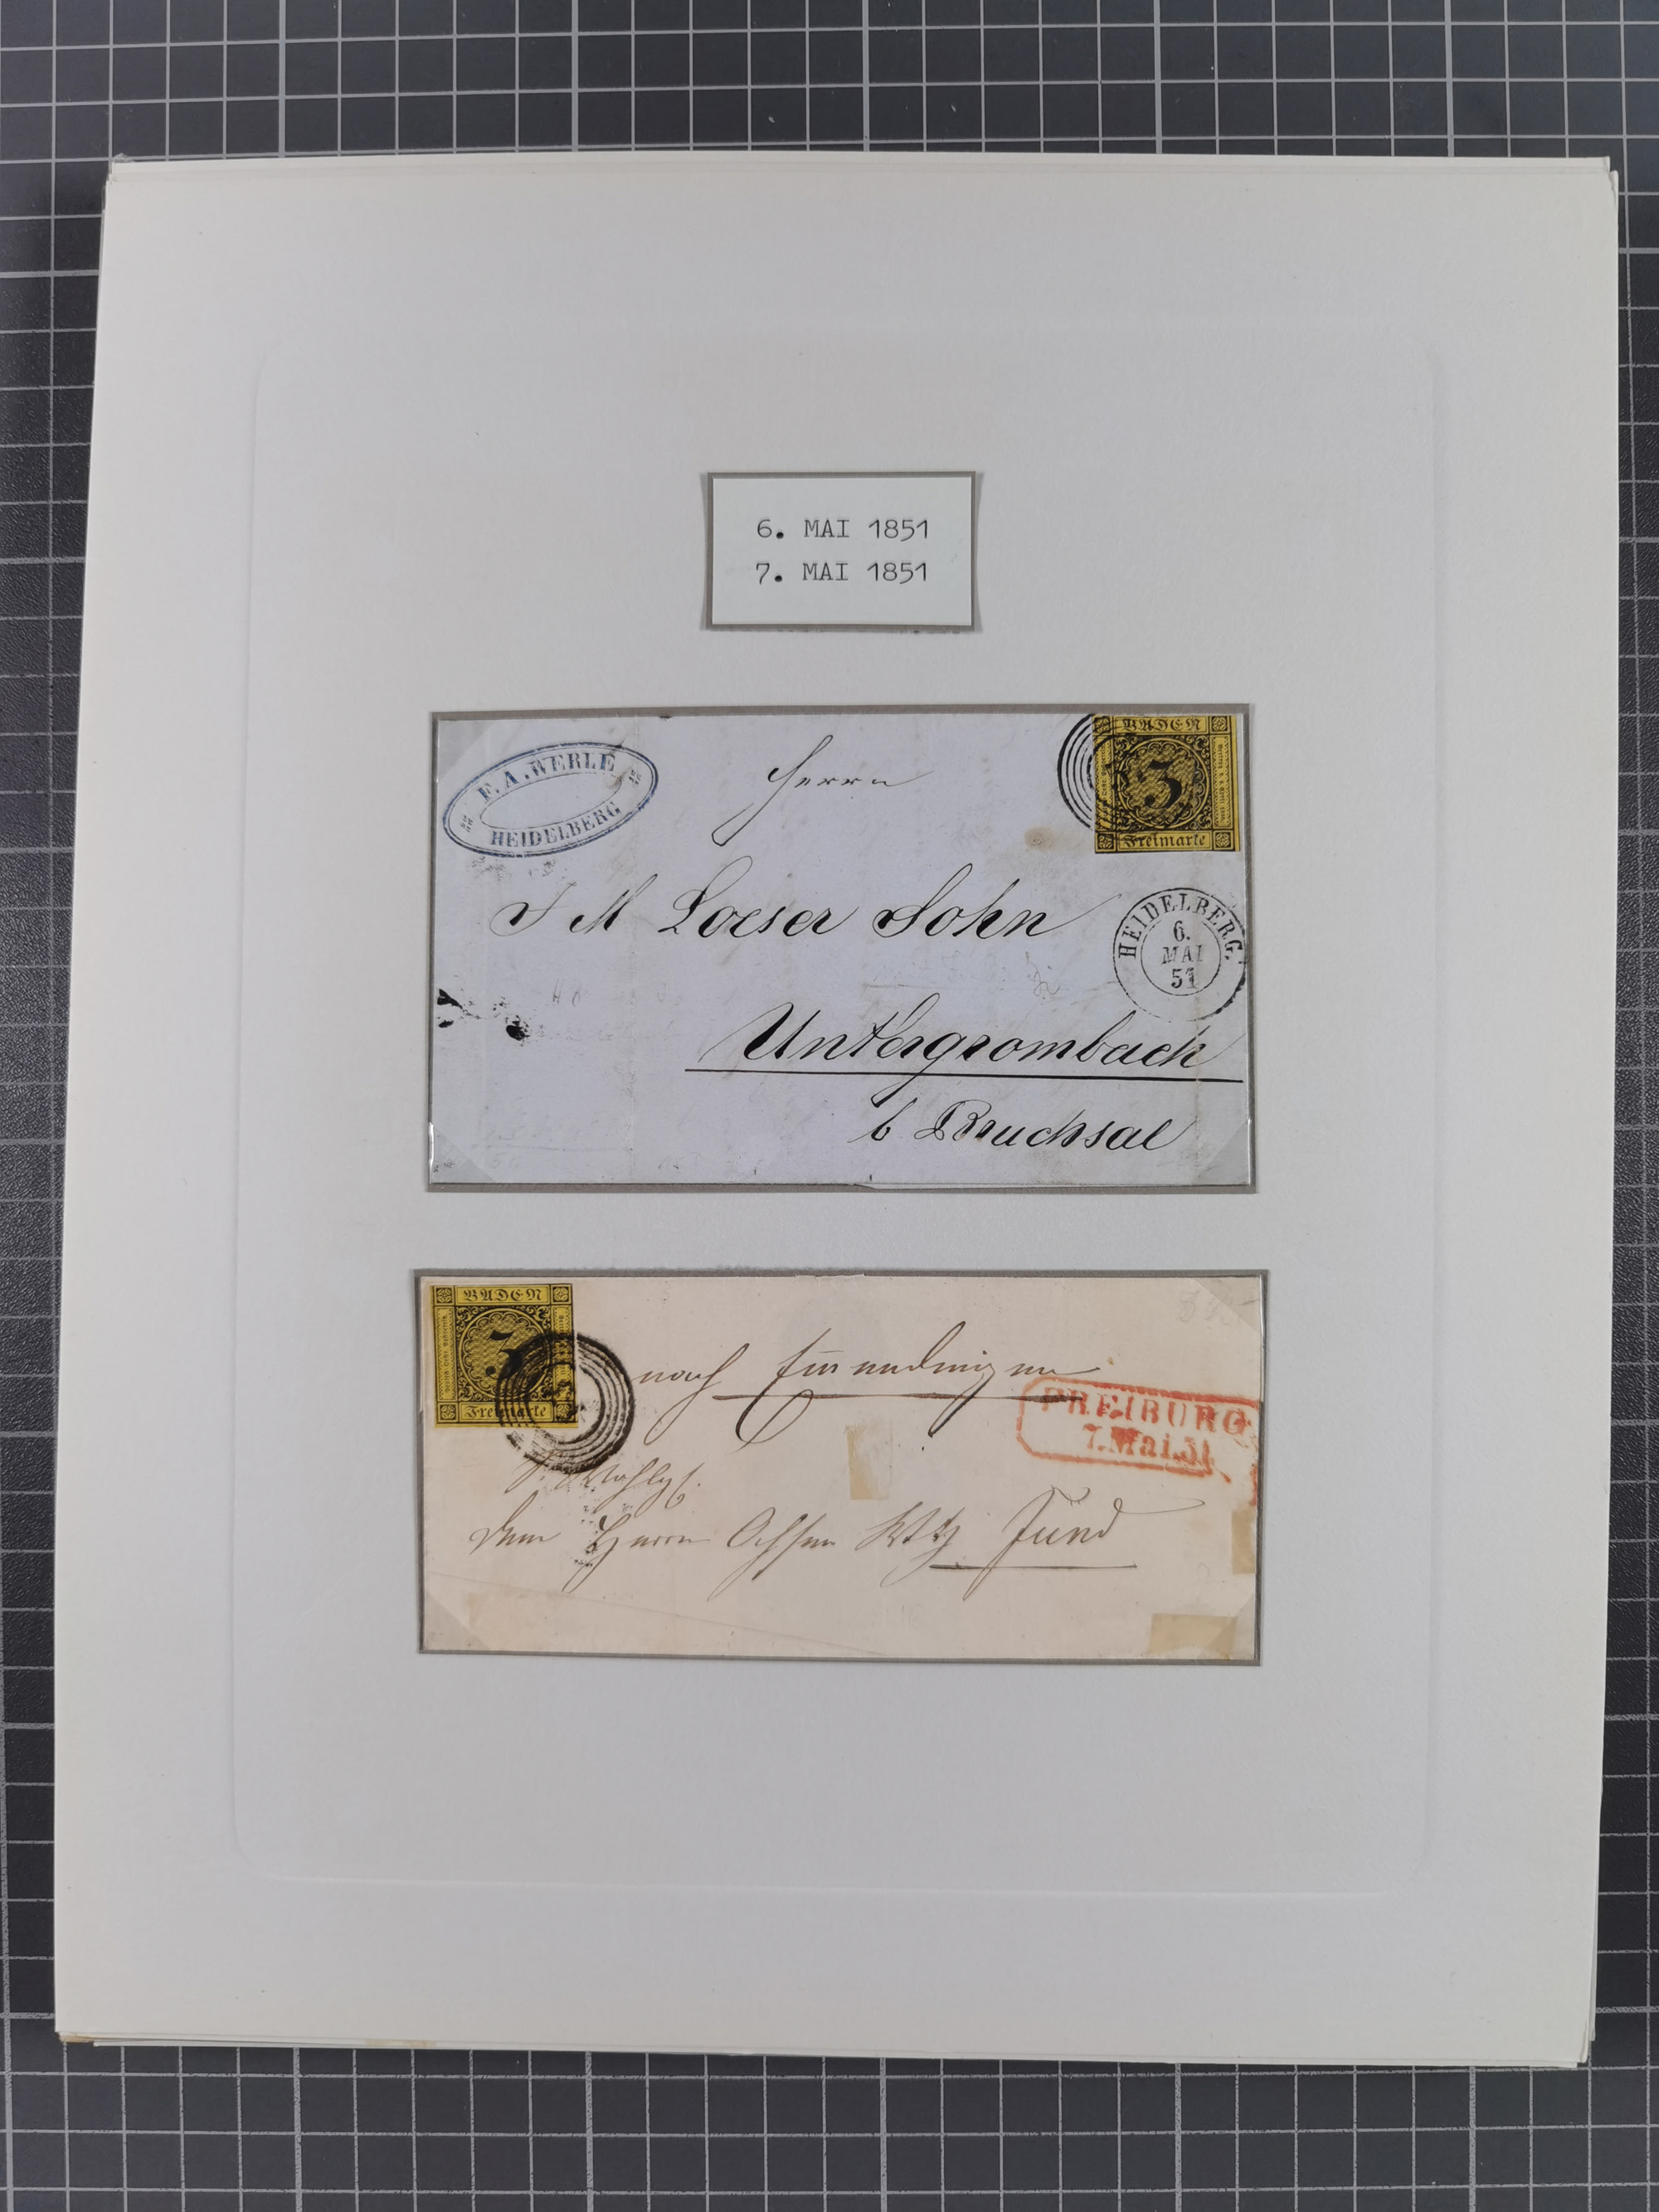 6. MAI 1851
7. MAI 1851
F. A. WERLE
HEIDELBERG
Herrn
BADEN
3
Freimarke
J M Loeser Sohn
HEIDELBERG.
6.
MAI
51
Untergrombach
b Bruchsal
BADEN
3
Freimarke
nach
FREIBURG
7. Mai. 51
Dem Herrn Ochsen